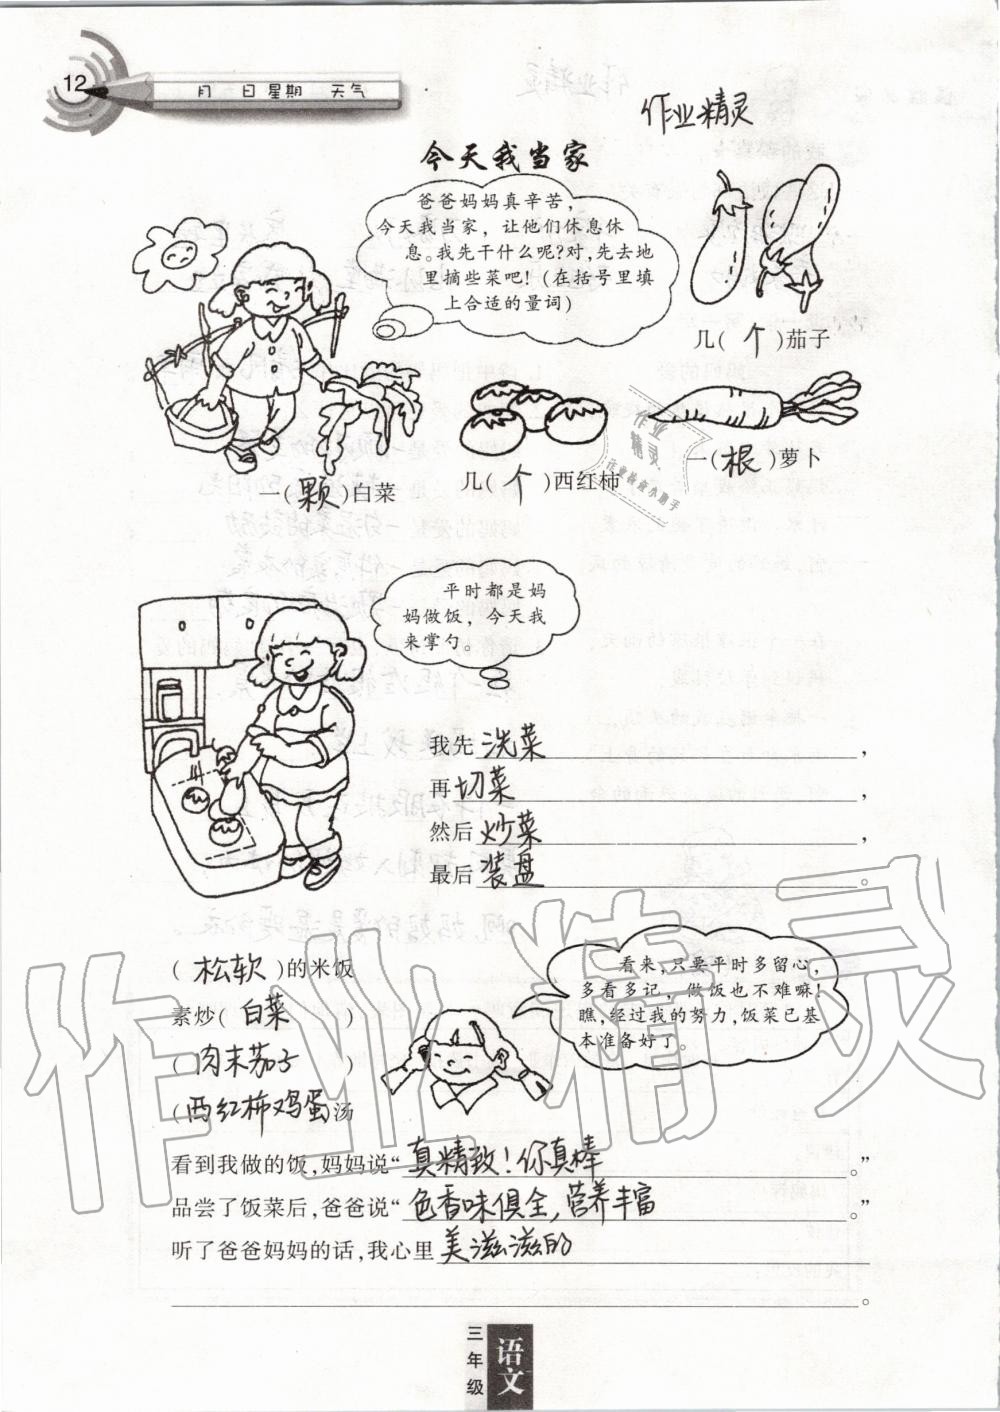 12
月 日 星期 天气
作业精灵
今天我当家
爸爸妈妈真辛苦,
今天我当家,让他们休息休
息。我先干什么呢?对,先去地
里摘些菜吧!(在括号里填
上合适的量词)
几( 个 )茄子
一( 颗 )白菜
几( 个 )西红柿
一( 根 )萝卜
作业
精灵
平时都是妈
妈做饭,今天我
来掌勺。
我先 洗菜 ,
再 切菜 ,
然后 炒菜 ,
最后 装盘 。
( 松软 )的米饭
素炒( 白菜 )
( 肉末茄子 )
(西红柿鸡蛋)汤
看来,只要平时多留心,
多看多记,做饭也不难嘛!
瞧,经过我的努力,饭菜已基
本准备好了。
看到我做的饭,妈妈说“ 真精致!你真棒 。”
品尝了饭菜后,爸爸说“ 色香味俱全,营养丰富 。”
听了爸爸妈妈的话,我心里 美滋滋的
。
作业精灵
三年级
语文